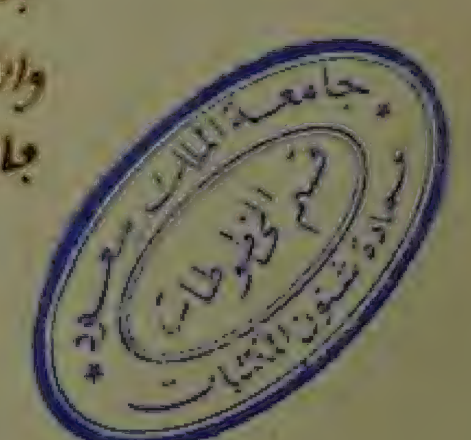 وال
جامعة الملك سعود
قسم المخطوطات
عمادة شئون المكتبات